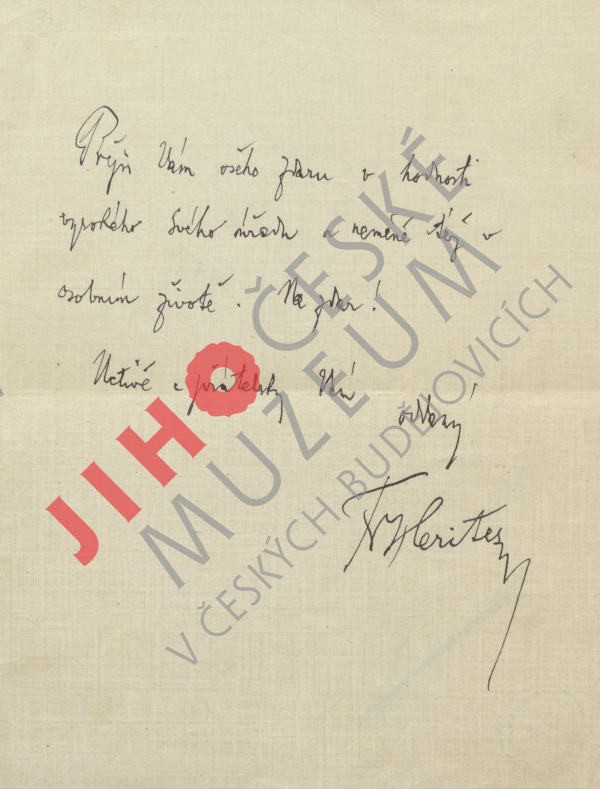 Přeji Vám všeho zdaru v hodnosti
vysokého svého úřadu a neméně též v
osobním životě. Na zdar!
Uctivě a přátelsky Vám
oddaný
F Heritес
JIHOČESKÉ
MUZEUM
V ČESKÝCH BUDĚJOVICÍCH